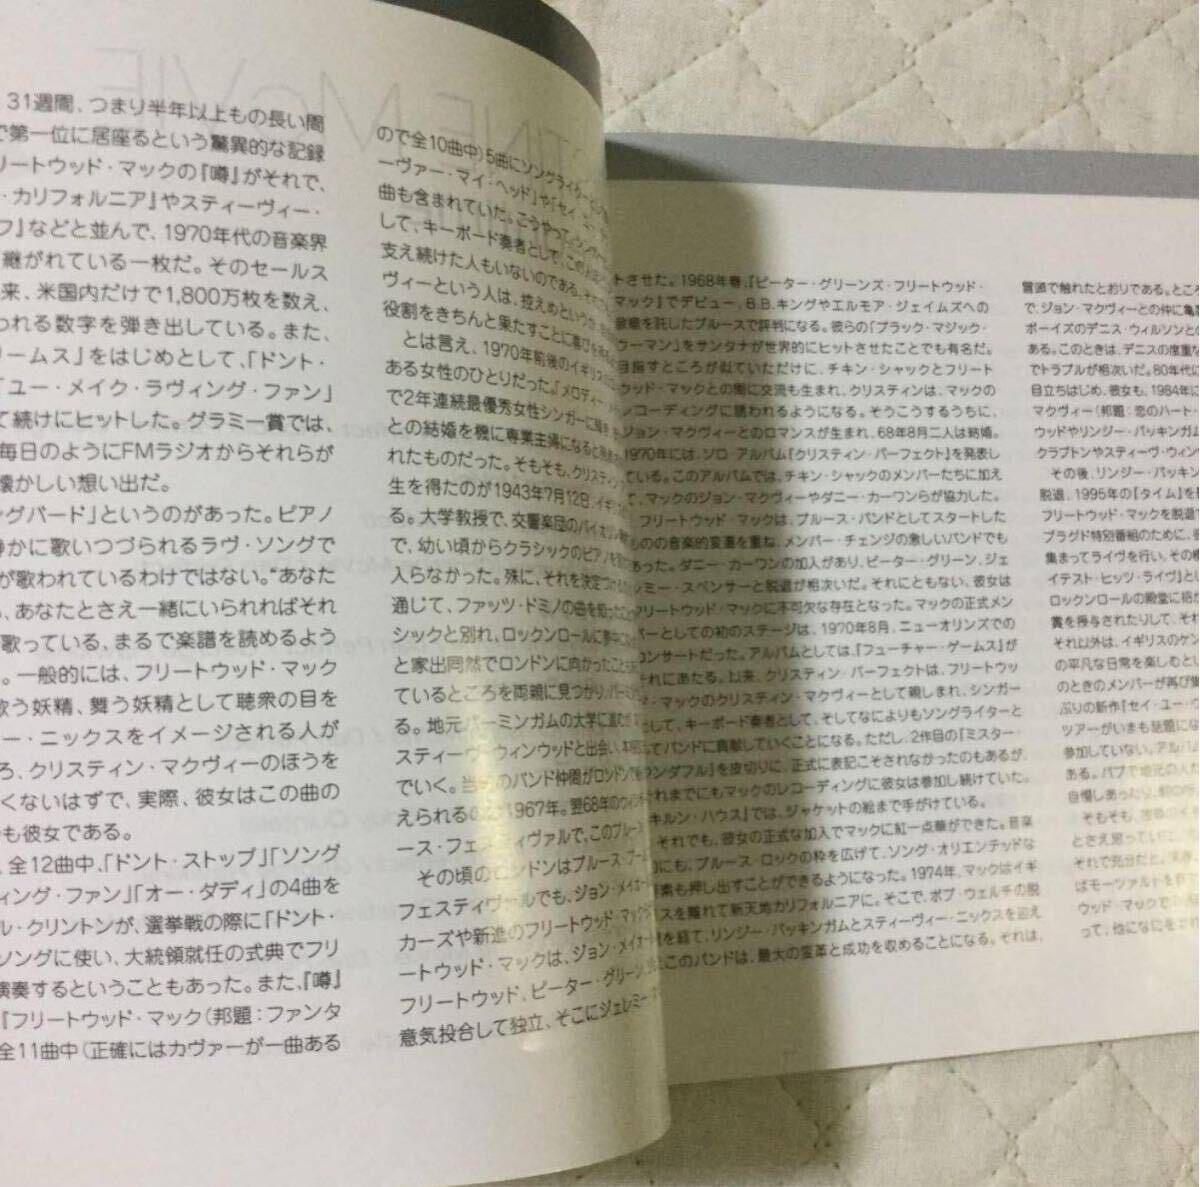 31週間、つまり半年以上もの長い間
で第一位に居座るという驚異的な記録
リートウッド・マックの『噂』がそれで、
・カリフォルニア』やスティーヴィー・
フ』などと並んで、1970年代の音楽界
継がれている一枚だ。そのセールス
来、米国内だけで1,800万枚を数え、
われる数字を弾き出している。また、
リームス」をはじめとして、「ドント・
「ユー・メイク・ラヴィング・ファン」
て続けにヒットした。グラミー賞では、
毎日のようにFMラジオからそれらが
懐かしい想い出だ。
ングバード」というのがあった。ピアノ
静かに歌いつづられるラヴ・ソングで
が歌われているわけではない。“あなた
、あなたとさえ一緒にいられればそれ
歌っている、まるで楽譜を読めるよう
。一般的には、フリートウッド・マック
歌う妖精、舞う妖精として聴衆の目を
ー・ニックスをイメージされる人が
ろ、クリスティン・マクヴィーのほうを
くないはずで、実際、彼女はこの曲の
も彼女である。
、全12曲中、「ドント・ストップ」「ソング
ィング・ファン」「オー・ダディ」の4曲を
ル・クリントンが、選挙戦の際に「ドント・
ソングに使い、大統領就任の式典でフリ
演奏するということもあった。また、『噂』
『フリートウッド・マック（邦題：ファンタ
全11曲中（正確にはカヴァーが一曲ある
ので全10曲中）5曲にソングライター
ーヴァー・マイ・ヘッド」や「セイ・
曲も含まれていた。こうやって、
して、キーボード奏者として、この
支え続けた人もいないのである。
ヴィーという人は、控えめというか、
役割をきちんと果たすことに喜びを
とは言え、1970年前後のイギリス
ある女性のひとりだった。『メロディー・
で2年連続最優秀女性シンガーに
との結婚を機に専業主婦になると
れたものだった。そもそも、クリスティン
生を得たのが1943年7月12日、イギ
る。大学教授で、交響楽団のバイオ
で、幼い頃からクラシックのピアノを
入らなかった。殊に、それを決定づ
通じて、ファッツ・ドミノの曲を知った
シックと別れ、ロックンロールに夢中に
と家出同然でロンドンに向かったこと
ているところを両親に見つかり、バーミン
る。地元バーミンガムの大学に進むが、
スティーヴ・ウィンウッドと出会い、本格
でいく。当時のバンド仲間がロンドンで
えられるのが1967年。翌68年のウィンザー
ース・フェスティヴァルで、このブルー
その頃のロンドンはブルース・ブー
フェスティヴァルでも、ジョン・メイオー
カーズや新進のフリートウッド・マック
ートウッド・マックは、ジョン・メイオー
フリートウッド、ピーター・グリーン、
意気投合して独立、そこにジェレミー・
トさせた。1968年春、『ピーター・グリーンズ・フリートウッド・
マック』でデビュー、B.B.キングやエルモア・ジェイムズへの
敬意を託したブルースで評判になる。彼らの「ブラック・マジック・
ウーマン」をサンタナが世界的にヒットさせたことでも有名だ。
目指すところが似ていただけに、チキン・シャックとフリート
ウッド・マックとの間に交流も生まれ、クリスティンは、マックの
レコーディングに誘われるようになる。そうこうするうちに、
ジョン・マクヴィーとのロマンスが生まれ、68年8月二人は結婚。
1970年には、ソロ・アルバム『クリスティン・パーフェクト』を発表し
ている。このアルバムでは、チキン・シャックのメンバーたちに加え
て、マックのジョン・マクヴィーやダニー・カーワンらが協力した。
フリートウッド・マックは、ブルース・バンドとしてスタートした
ものの音楽的変遷を重ね、メンバー・チェンジの激しいバンドでも
あった。ダニー・カーワンの加入があり、ピーター・グリーン、ジェ
レミー・スペンサーと脱退が相次いだ。それにともない、彼女は
フリートウッド・マックに不可欠な存在となった。マックの正式メン
バーとしての初のステージは、1970年8月、ニューオリンズでの
コンサートだった。アルバムとしては、『フューチャー・ゲームス』が
それにあたる。以来、クリスティン・パーフェクトは、フリートウッ
ド・マックのクリスティン・マクヴィーとして親しまれ、シンガー
として、キーボード奏者として、そしてなによりもソングライターと
してバンドに貢献していくことになる。ただし、2作目の『ミスター・
ワンダフル』を皮切りに、正式に表記こそされなかったのもあるが、
それまでにもマックのレコーディングに彼女は参加し続けていた。
『キルン・ハウス』では、ジャケットの絵まで手がけている。
それでも、彼女の正式な加入でマックに紅一点華ができた。音楽
的にも、ブルース・ロックの枠を広げて、ソング・オリエンテッドな
要素も押し出すことができるようになった。1974年、マックはイギ
リスを離れて新天地カリフォルニアに。そこで、ボブ・ウェルチの脱
退を経て、リンジー・バッキンガムとスティーヴィー・ニックスを迎え
たこのバンドは、最大の変革と成功を収めることになる。それは、
冒頭で触れたとおりである。ところ
で、ジョン・マクヴィーとの仲に亀裂
ボーイズのデニス・ウィルソンと
ある。このときは、デニスの度重な
でトラブルが相次いだ。80年代に
目立ちはじめ、彼女も、1984年に
マクヴィー（邦題：恋のハート・
ウッドやリンジー・バッキンガム
クラプトンやスティーヴ・ウィン
その後、リンジー・バッキン
脱退、1995年の『タイム』を
フリートウッド・マックを脱退
プラグド特別番組のために、
集まってライヴを行い、その
イテスト・ヒッツ・ライヴ』とし
ロックンロールの殿堂に招か
賞を授与されたりして、それ
それ以外は、イギリスのケン
の平凡な日常を楽しむとい
のときのメンバーが再び集
ぶりの新作『セイ・ユー・
ツアーがいまも話題にな
参加していない。アルバム
ある。パブで地元の人た
自慢しあったり、
そもそも、
とさえ思っていた
それで充分だと、
ばモーツァルトを
ウッド・マックで
って、他になにを